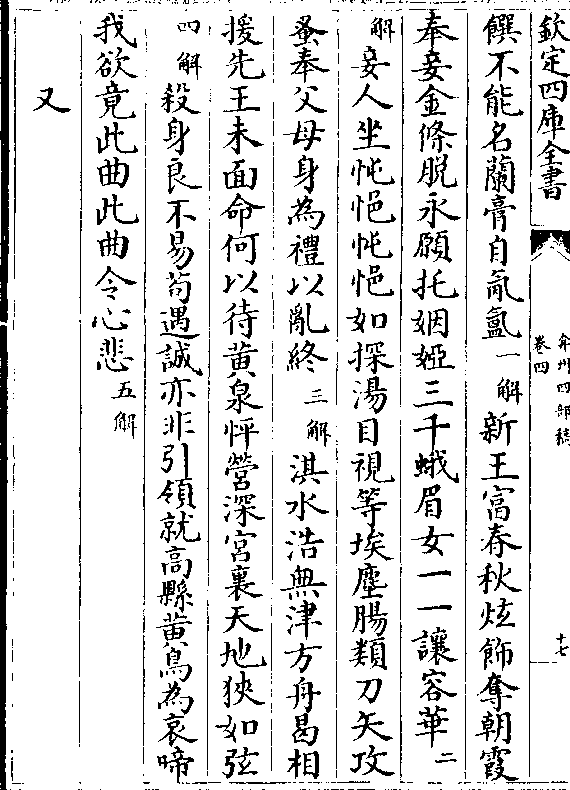 欽定四庫全書
弇州四部稿
卷四
十七
饌不能名蘭膏自氤氳一解新王富春秋炫飾奪朝霞
奉妾金條脫永願托姻婭三千蛾眉女一一讓容華二
解妾人坐忳悒忳悒如探湯目視等埃塵腸類刀矢攻
蚤奉父母身為禮以亂終三解淇水浩無津方舟曷相
援先王未面命何以待黃泉怦營深宮裏天地狹如弦
四解殺身良不易苟遇誠亦非引領就高縣黃鳥為哀啼
我欲竟此曲此曲令心悲五解
又